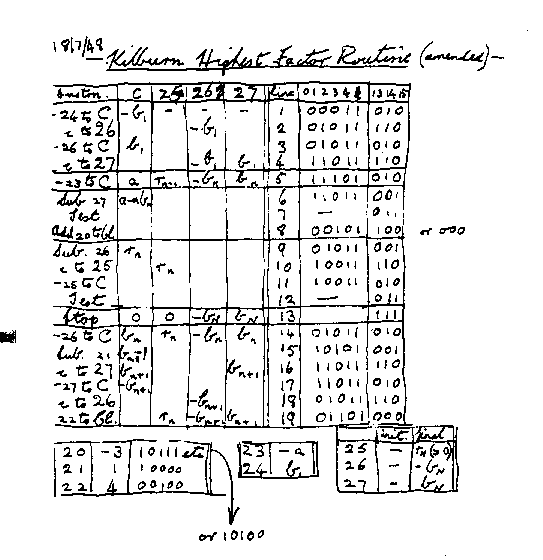 18/7/48 Kilburn Highest Factor Routine (amended)
Instn. C 25 26 27 line 0 1 2 3 4 13 14 15
-24 to C -b1 - - - 1 00011 010
c to 26 -b1 2 01011 110
-26 to C b1 3 01011 010
c to 27 -b1 b1 4 11011 110
-23 to C a rn-1 -bn bn 5 11101 010
Sub 27 a-bn 6 11011 001
Test 7 - 011
Add 20 to bl. 8 00101 100 or 000
Sub. 26 rn 9 01011 001
c to 25 rn 10 10011 110
-25 to C 11 10011 010
Test 12 - 011
Stop 0 0 -bN bN 13 111
-26 to C bn rn -bn bn 14 01011 010
Sub. 21 bn-1 15 10101 001
c to 27 bn+1 bn+1 16 11011 110
-27 to C -bn+1 17 11011 010
c to 26 -bn+1 18 01011 110
22 to bl. rn -bn+1 bn+1 19 01101 000
20 -3 10111 etc
21 1 10000
22 4 00100
or 10100
23 -a
24 b1
init. final
25 - rN(=0)
26 - -bN
27 - bN